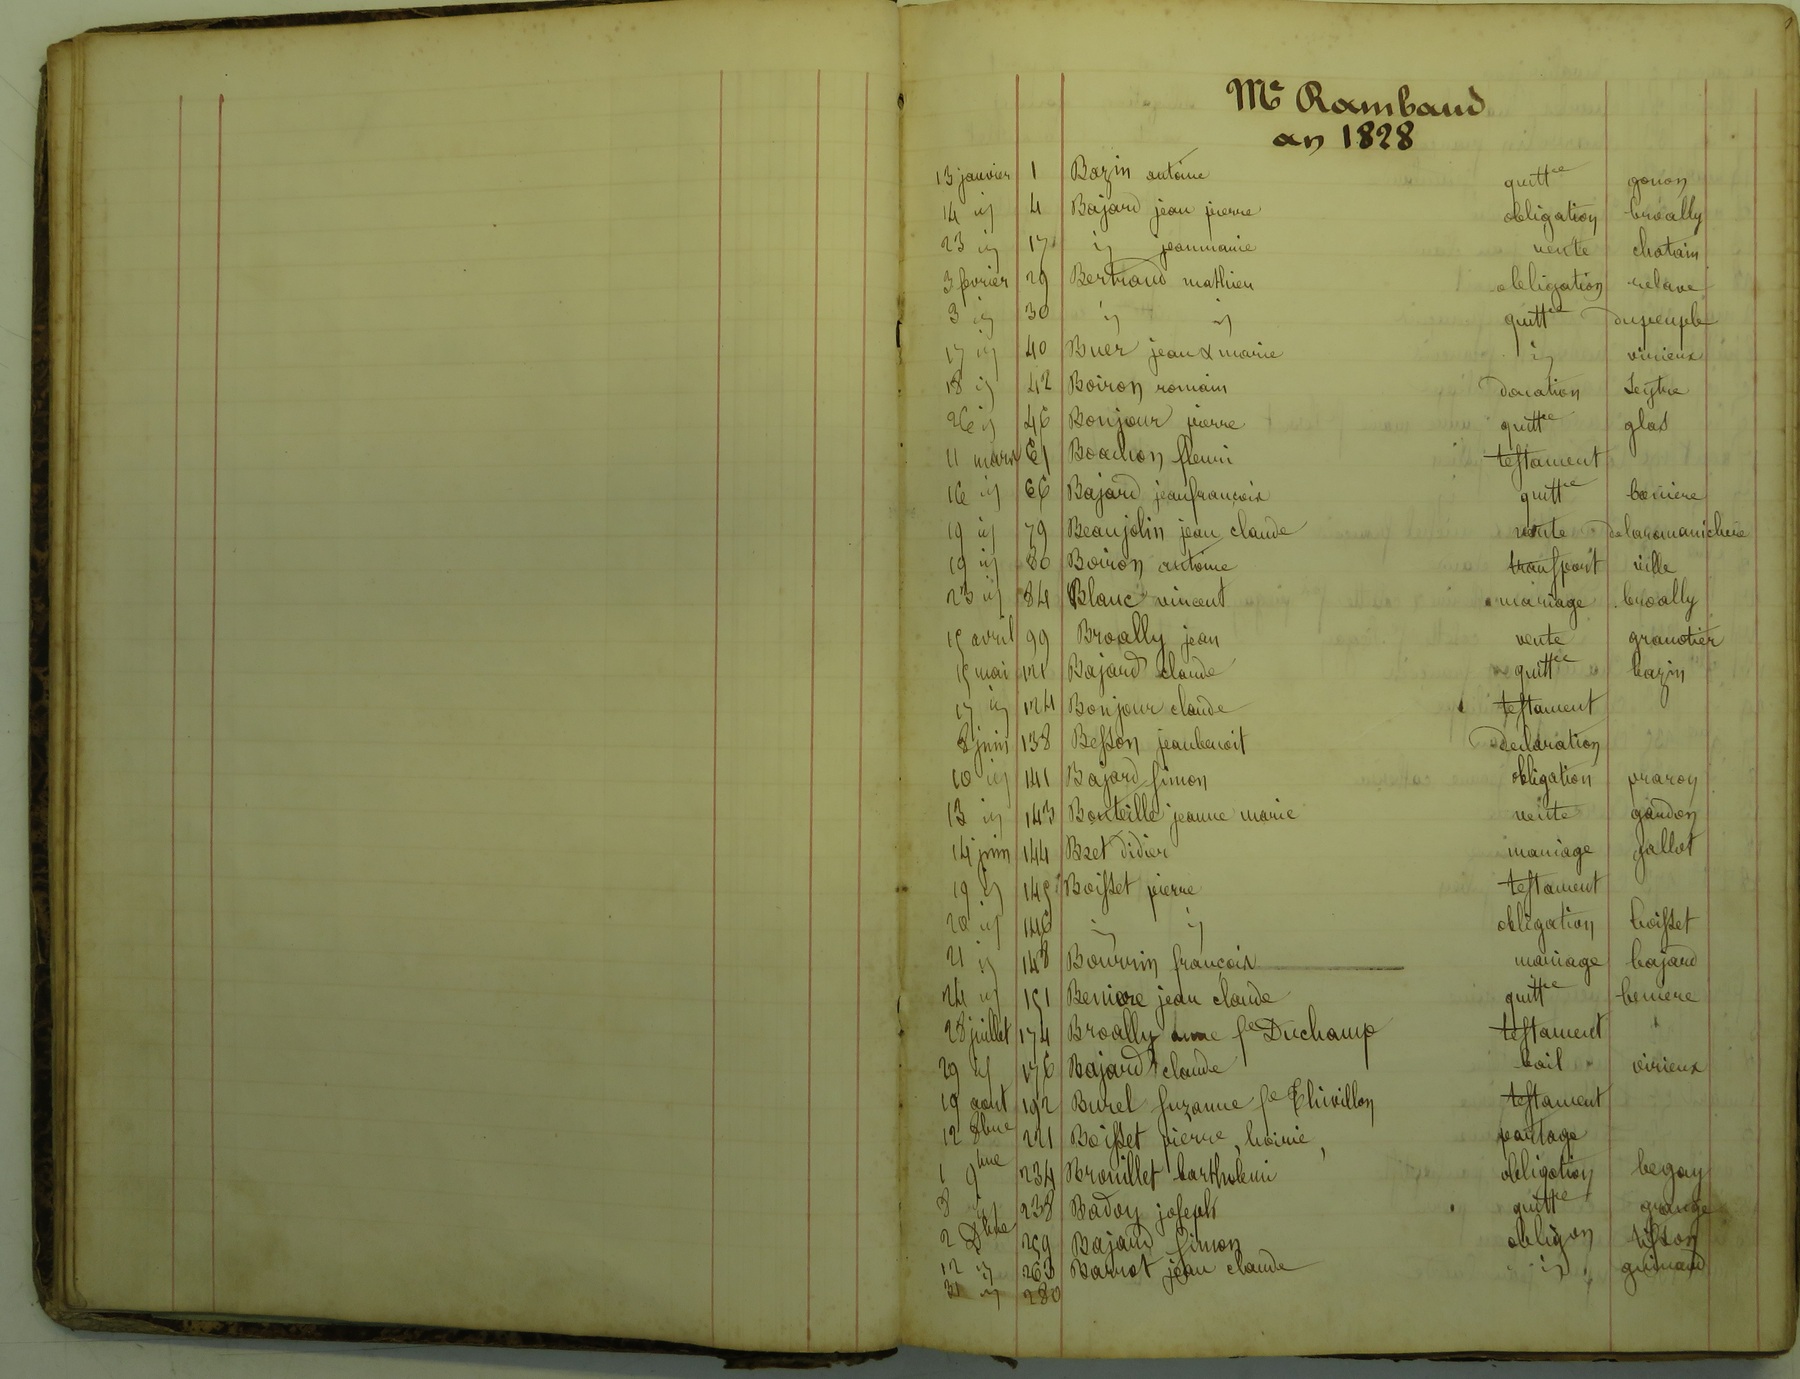 Me Rambaud
an 1828
13 janvier 1 Bazin antoine quittce gonon
14 id 4 Bajard jean pierre obligation broally
23 id 17 id jeanmarie vente chatain
3 fevrier 29 Bertrand mathieu obligation relave
3 id 30 id id quittce dupeuple
17 id 40 Buer jean & marie id virieux
18 id 42 Boiron romain donation Seytre
26 id 46 Bonjour pierre quittce glas
11 mars 61 fleuri testament
16 id 66 Bajard jeanfrançois quittce
19 id 79 Beaujolin jean claude vente
19 id 80 Boiron antoine transport ville
23 id 84 Blanc vincent mariage broally
15 avril 99 Broally jean vente granotier
15 mai 121 Bajard claude quittce bazin
17 id 124 Bonjour claude testament
8 juin 138 Besson jeanbenoit declaration
10 id 141 Bajard simon obligation praroy
13 id 143 Bouteille jeanne marie vente gardon
14 juin 144 Bret didier mariage gallot
19 id 145 Boisset pierre testament
20 id 146 id id obligation boisset
21 id 148 Bourrin françois mariage bajard
24 id 151 Beniere jean claude quittce beniere
28 juillet 174 Broally anne fe Duchamp testament
29 id 176 Bajard claude bail virieux
19 aout 192 Burel suzanne fe Thivillon testament
12 8bre 221 Boisset pierre, hoirie, partage
1 9bre 234 Brouillet bartholemi obligation begay
8 id 238 Badoy joseph quittce grange
2 Dbre 259 Bajard simon obligon tisson
12 id 263 Barnot jean claude id guimard
31 id 280